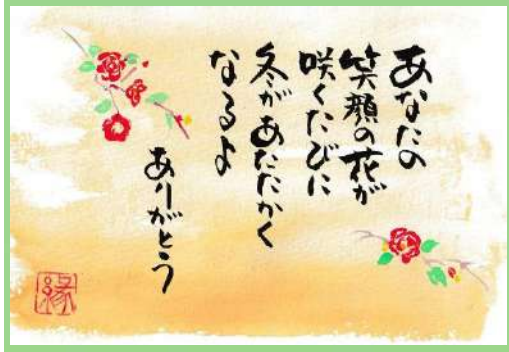 あなたの
笑顔の花が
咲くたびに
冬があたたかく
なるよ
ありがとう
縁